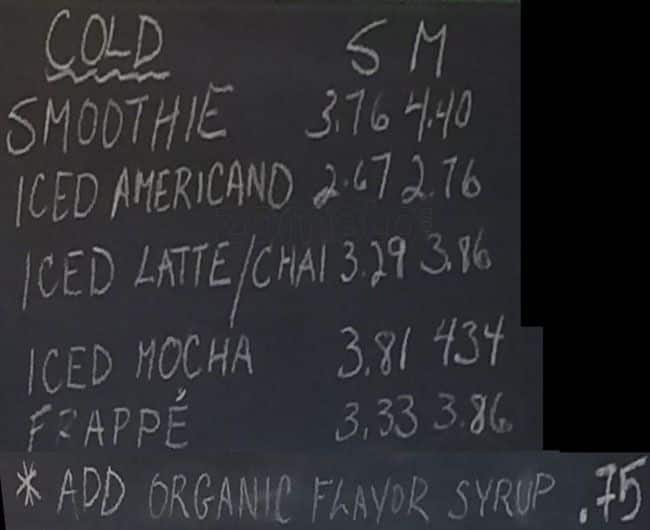 COLD S M
SMOOTHIE 3.76 4.40
ICED AMERICANO 2.67 2.76
ICED LATTE/CHAI 3.29 3.86
ICED MOCHA 3.81 434
FRAPPÉ 3.33 3.86
* ADD ORGANIC FLAVOR SYRUP .75